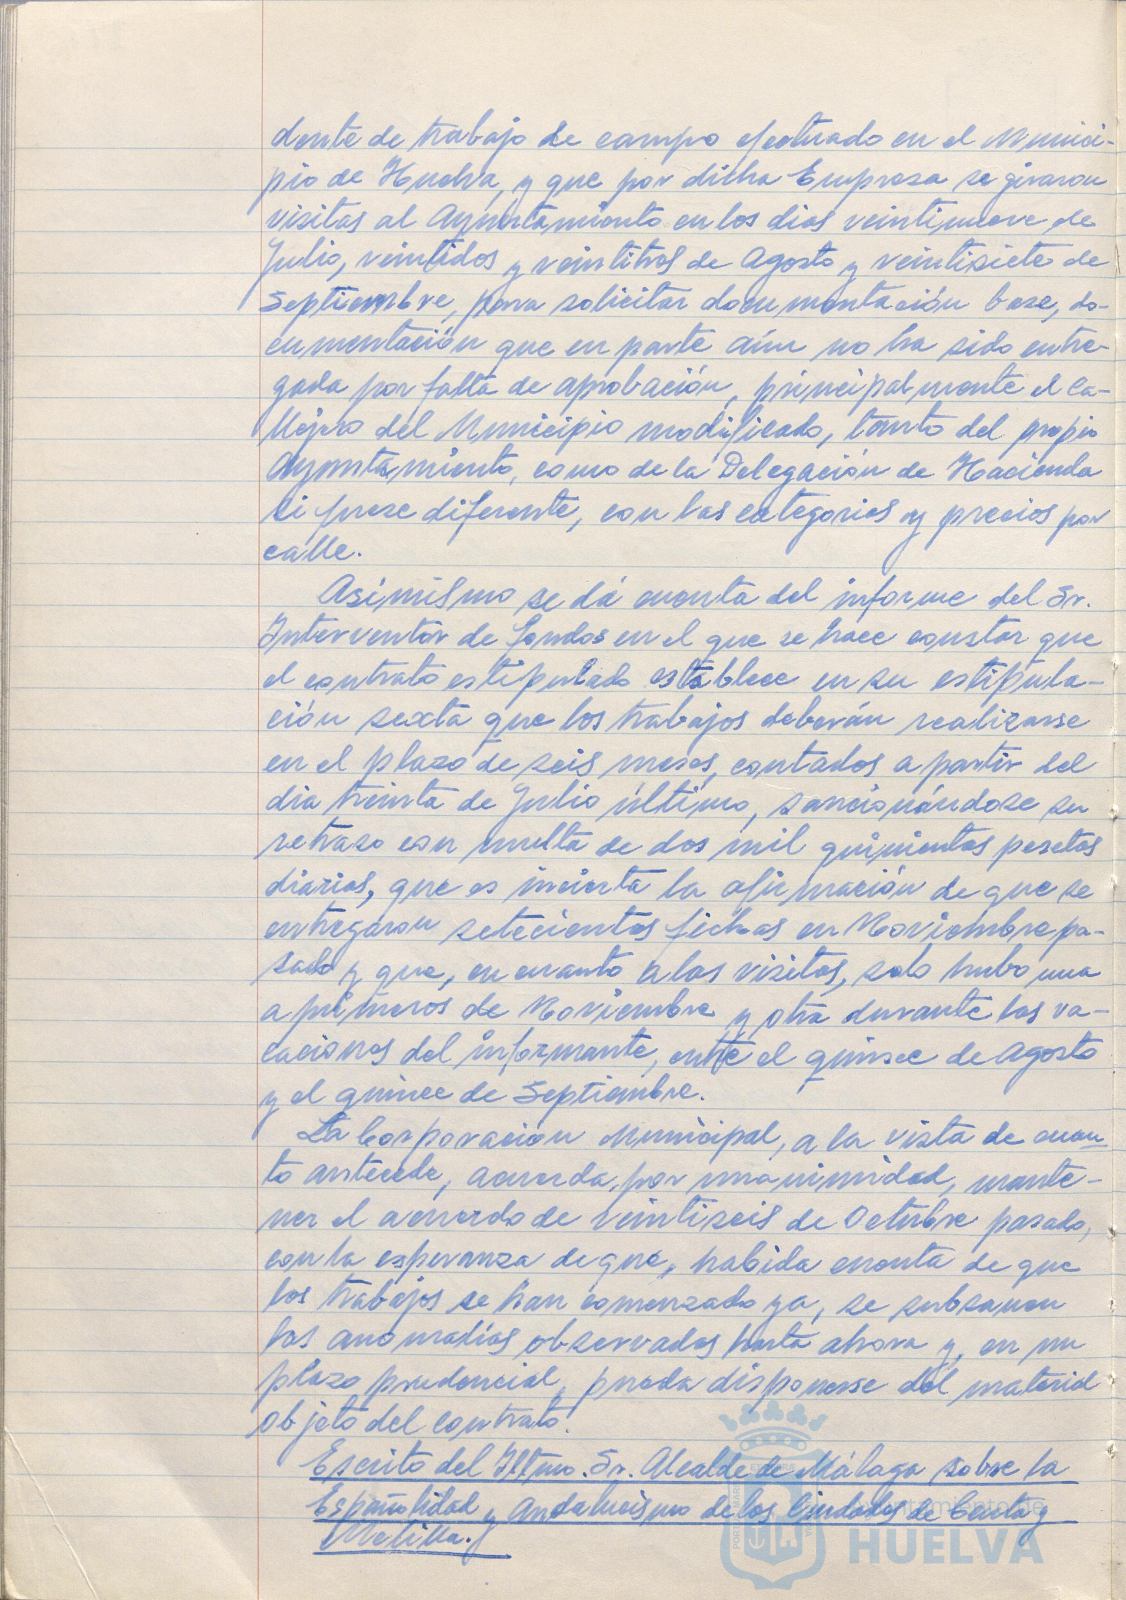 dente de trabajo de campo efectuado en el Munici-
pio de Huelva, y que por dicha Empresa se giraron
visitas al Ayuntamiento en los dias veintinueve de
Julio, veintidos y veintitres de Agosto y veintisiete de
Septiembre, para solicitar documentación base, do-
cumentación que en parte aún no ha sido entre-
gada por falta de aprobación, principalmente el Ca-
llejero del Municipio modificado, tanto del propio
Ayuntamiento, como de la Delegación de Hacienda
si fuese diferente, con las categorias y precios por
calle.
Asimismo se dá cuenta del informe del Sr.
Interventor de fondos en el que se hace constar que
el contrato estipulado establece en su estipula-
ción sexta que los trabajos deberán realizarse
en el plazo de seis meses, contados a partir del
dia treinta de Julio último, sancionándose su
retraso con multa de dos mil quinientas pesetas
diarias, que es incierta la afirmación de que se
entregaron setecientas fichas en Noviembre pa-
sado y que, en cuanto a las visitas, solo hubo una
a primeros de Noviembre y otra durante las va-
caciones del informante, entre el quince de Agosto
y el quince de Septiembre.
La Corporación Municipal, a la vista de cuan-
to antecede, acuerda, por unanimidad, mante-
ner el acuerdo de veintiseis de Octubre pasado,
con la esperanza de que, habida cuenta de que
los trabajos se han comenzado ya, se subsanen
las anomalías observadas hasta ahora y, en un
plazo prudencial, pueda disponerse del material
objeto del contrato.
Escrito del Iltmo. Sr. Alcalde de Málaga sobre la
Españolidad y Andalucismo de las Ciudades de Ceuta y
Melilla.
Ayuntamiento de
HUELVA